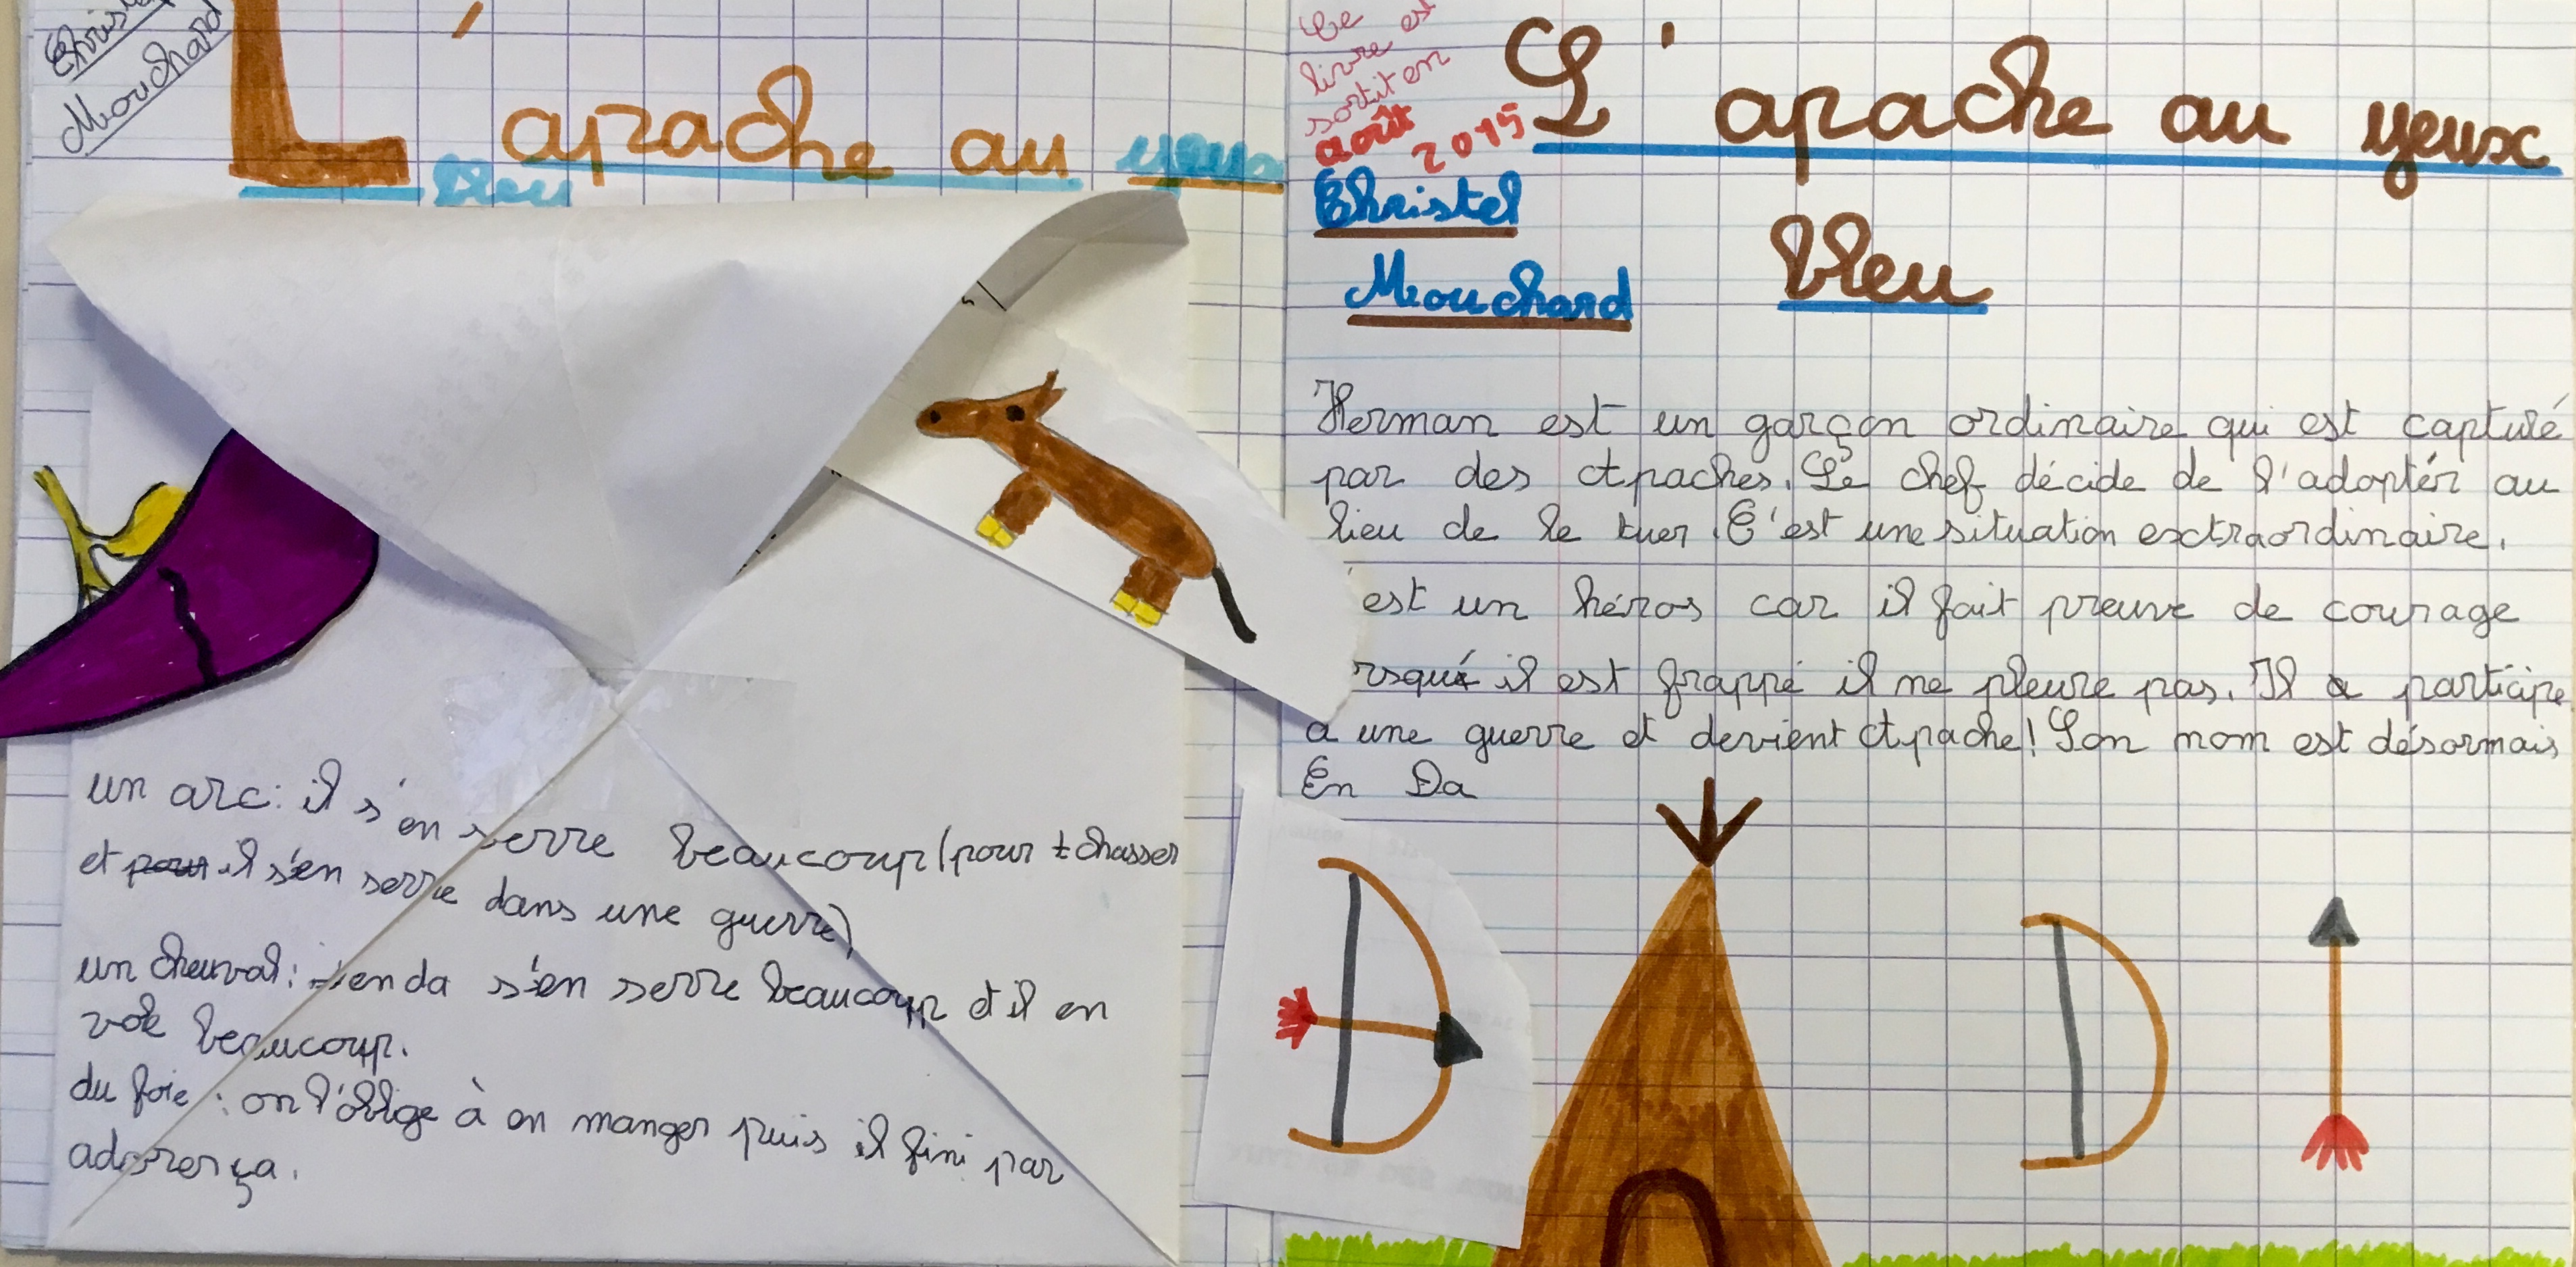 Christel
Mouchard
L'apache au yeux
bleu
un arc: il s'en serre beaucoup (pour chasser
et pour il s'en serre dans une guerre)
un cheuval: enda s'en serre beaucoup et il en
vole beaucoup.
du foie: on l'oblige à en manger puis il fini par
adorer ça.
Ce
livre est
sortit en
août
2015
L'apache au yeux
bleu
Christel
Mouchard
Herman est un garçon ordinaire qui est capturé
par des Apaches. Le chef décide de l'adopter au
lieu de le tuer. C'est une situation exctraordinaire.
est un héros car il fait preuve de courage
rsque il est frappé il ne pleure pas. Il a participe
a une guerre et devient Apache! Son nom est désormais
En Da